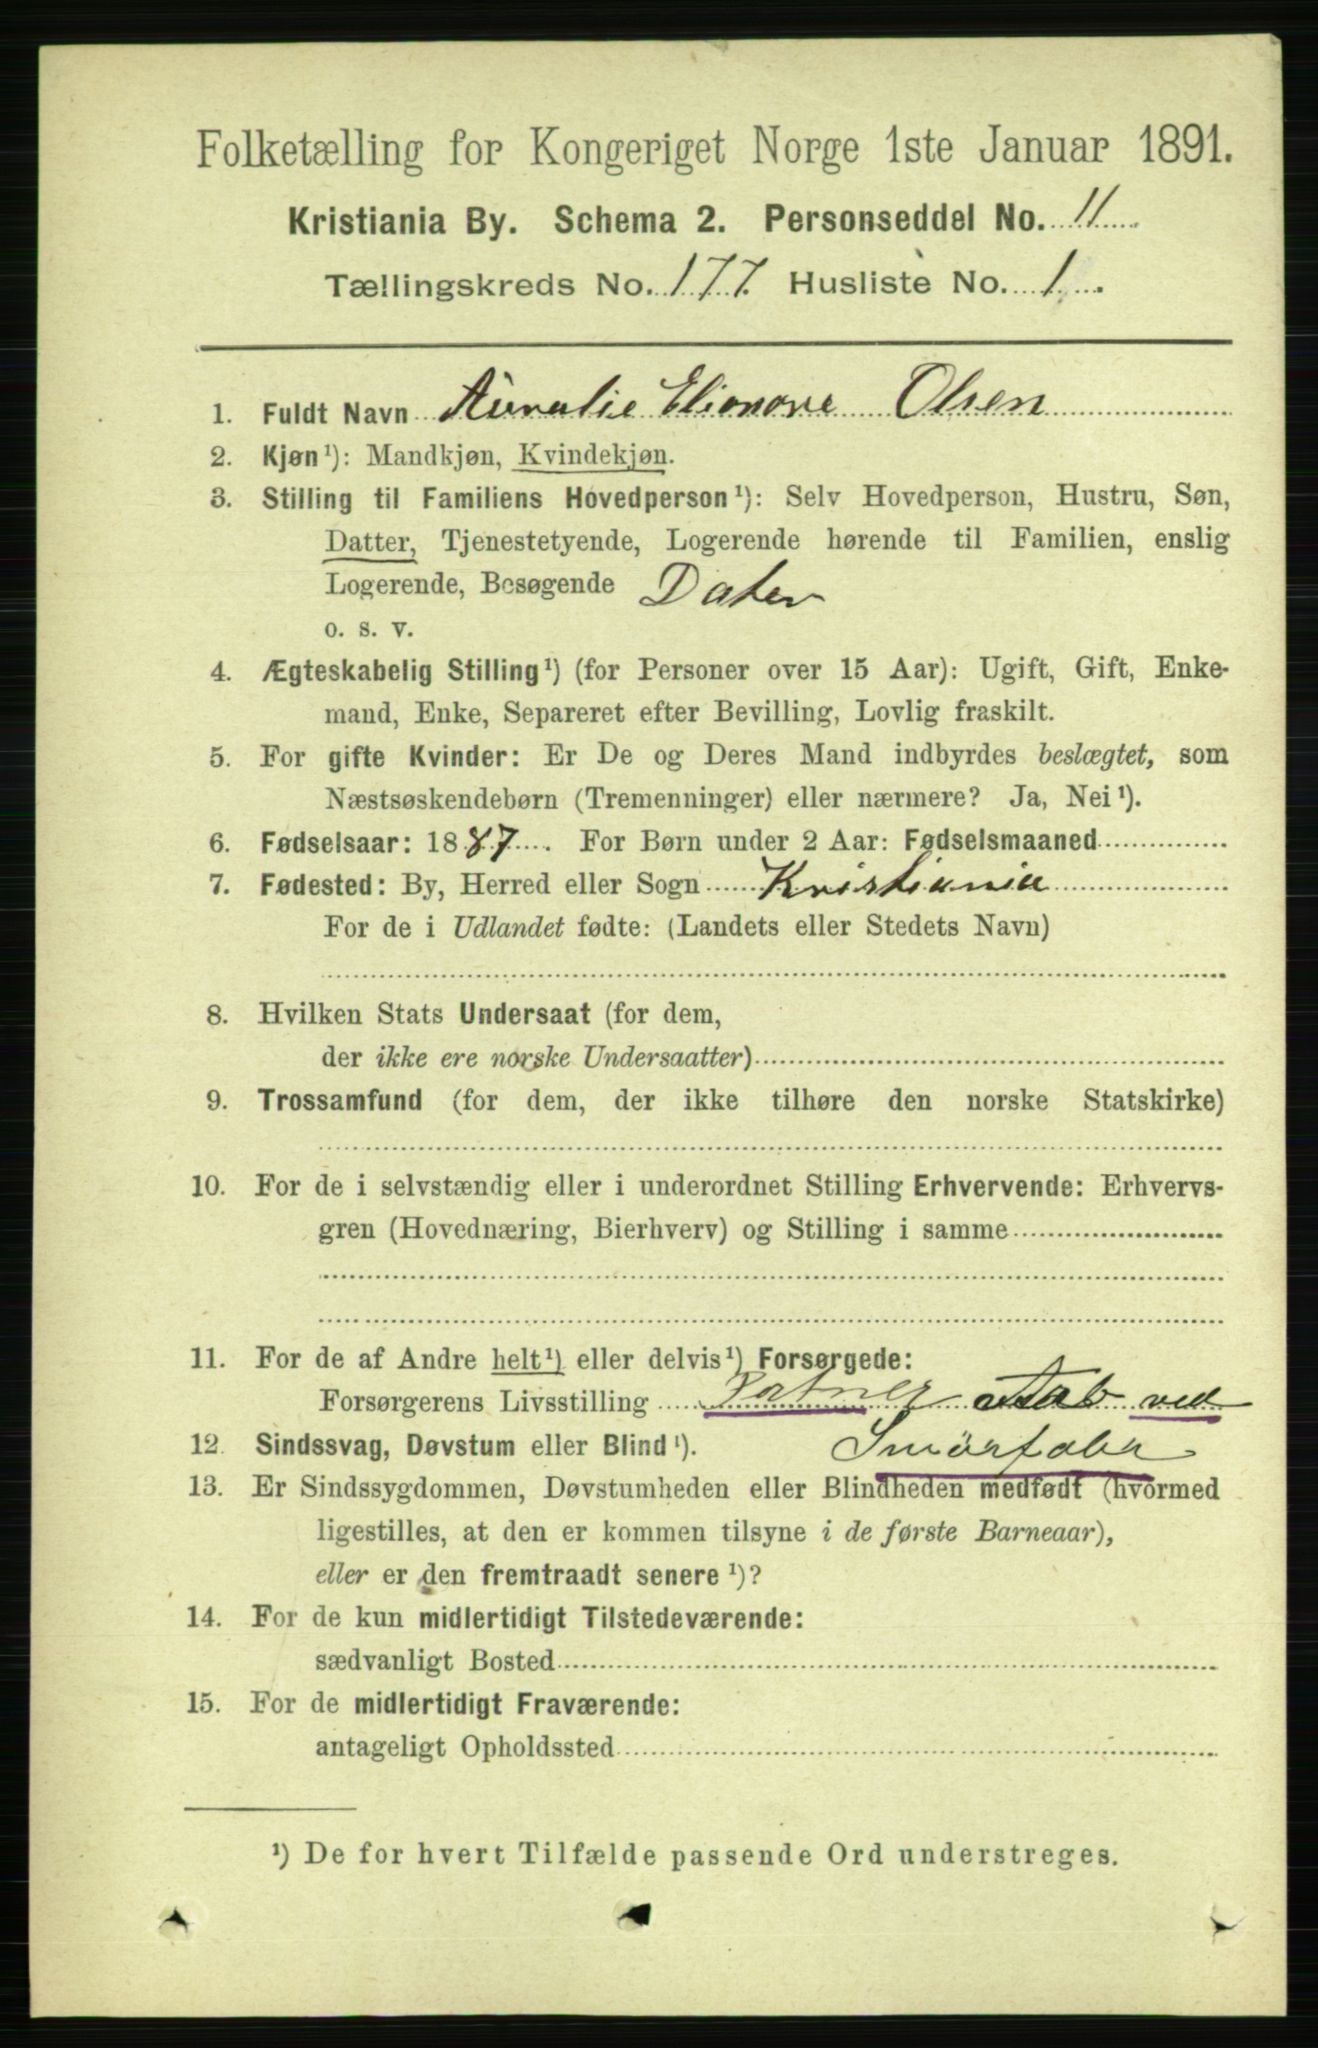 Folketælling for Kongeriget Norge 1ste Januar 1891.
Kristiania By. Schema 2. Personseddel No. 11
Tællingskreds No. 177. Husliste No. 1.
1. Fuldt Navn Auralie Elionore Olsen
2. Kjøn¹): Mandkjøn, Kvindekjøn.
3. Stilling til Familiens Hovedperson¹): Selv Hovedperson, Hustru, Søn,
Datter, Tjenestetyende, Logerende hørende til Familien, enslig
Logerende, Besøgende Dater
o. s. v.
4. Ægteskabelig Stilling¹) (for Personer over 15 Aar): Ugift, Gift, Enke-
mand, Enke, Separeret efter Bevilling, Lovlig fraskilt.
5. For gifte Kvinder: Er De og Deres Mand indbyrdes beslægtet, som
Næstsøskendebørn (Tremenninger) eller nærmere? Ja, Nei¹).
6. Fødselsaar: 1887. For Børn under 2 Aar: Fødselsmaaned
7. Fødested: By, Herred eller Sogn Kristiania
For de i Udlandet fødte: (Landets eller Stedets Navn)
8. Hvilken Stats Undersaat (for dem,
der ikke ere norske Undersaatter)
9. Trossamfund (for dem, der ikke tilhøre den norske Statskirke)
10. For de i selvstændig eller i underordnet Stilling Erhvervende: Erhvervs-
gren (Hovednæring, Bierhverv) og Stilling i samme
11. For de af Andre helt¹) eller delvis¹) Forsørgede:
Forsørgerens Livsstilling ved
12. Sindssvag, Døvstum eller Blind¹). Smørfabr
13. Er Sindssygdommen, Døvstumheden eller Blindheden medfødt (hvormed
ligestilles, at den er kommen tilsyne i de første Barneaar),
eller er den fremtraadt senere¹)?
14. For de kun midlertidigt Tilstedeværende:
sædvanligt Bosted
15. For de midlertidigt Fraværende:
antageligt Opholdssted
¹) De for hvert Tilfælde passende Ord understreges.